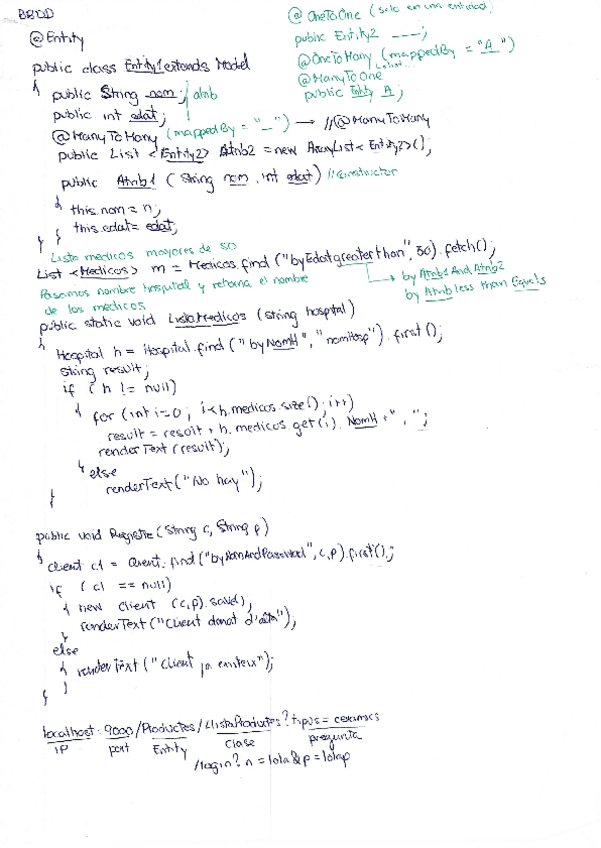 BBDD
@Entity
public class Entity1 extends Model
{ public String nom; } atrib
public int edat;
@ManyToMany (mappedBy = "_") → //@ManyToMany
public List <Entity2> Atrib2 = new ArrayList<Entity2>();
public Atrib1 (String nom, int edat) //constructor
{ this.nom = n;
this.edat = edat;
} }
@OneToOne (solo en una entidad)
public Entity2 ----;
@OneToMany (mappedBy = "A")
@ManyToOne
public Entity A;
Lista medicos mayores de 50
List <Medicos> m = Medicos.find ("byEdatgreaterthan", 50).fetch();
→ by Atrib1 And Atrib2
by Atrib less than Equals
Pasamos nombre hospital y retorna el nombre
de los medicos
public static void ListaMedicos (String hospital)
{
Hospital h = Hospital.find ("byNomH", "nomHosp").first();
String result;
if (h != null)
{ for (int i=0; i<h.medicos.size(); i++)
result = result + h.medicos.get(i).NomH + " , ";
renderText (result);
} else
renderText ("No hay");
}
public void Registre (String c, String p)
{ Client c1 = Client.find ("byNomAndPassword", c, p).first();
if (c1 == null)
{ new Client (c,p).save();
renderText ("Client donat d'alta");
}
else
{ renderText ("Client ja existeix");
}
}
localhost: 9000/Productes/LlistaProductes?tipus=ceramics
IP port Entity Clase pregunta
/login?n=lola&p=lolap